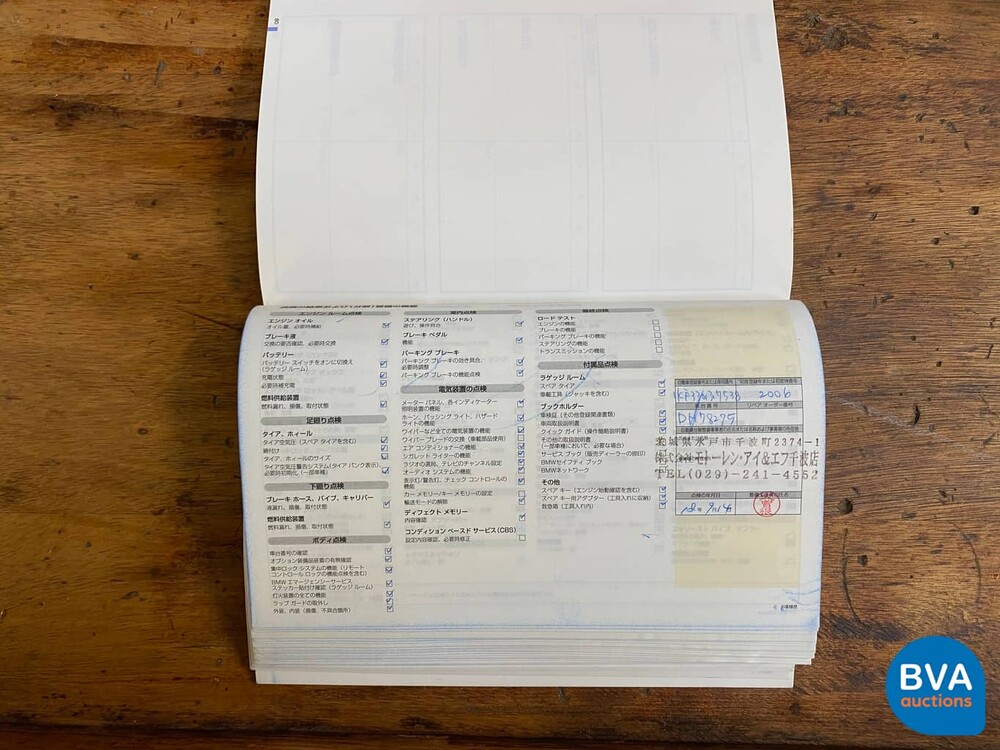 エンジン ルーム点検
エンジン オイル
オイル量、必要時補給
ブレーキ液
交換の要否確認、必要時交換
バッテリー
バッテリー スイッチをオンに切換え
(ラゲッジ ルーム)
充電状態
必要時補充電
燃料供給装置
燃料漏れ、損傷、取付状態
足廻り点検
タイア、ホィール
タイア空気圧(スペア タイアを含む)
締付け
タイア、ホィールのサイズ
タイア空気圧警告システム(タイア パンク表示)、
必要時初期化(一部車種)
下廻り点検
ブレーキ ホース、パイプ、キャリパー
液漏れ、損傷、取付状態
燃料供給装置
燃料漏れ、損傷、取付状態
ボディ点検
車台番号の確認
オプション装備品装着の有無確認
集中ロック システムの機能(リモート
コントロール ロックの機能点検を含む)
BMW エマージェンシーサービス
ステッカー貼付け確認(ラゲッジ ルーム)
灯火装置の全ての機能
ラップ ガードの取外し
外装、内装(損傷、不具合箇所)
室内点検
ステアリング(ハンドル)
遊び、操作具合
ブレーキ ペダル
機能
パーキング ブレーキ
パーキング ブレーキの効き具合、
必要時調整
パーキング ブレーキの機能点検
電気装置の点検
メーター パネル、各インディケーター
照明装置の機能
ホーン、パッシング ライト、ハザード
ライトの機能
ワイパーなど全ての電気装置の機能
ワイパー ブレードの交換(車載部品使用)
エア コンディショナーの機能
シガレット ライターの機能
ラジオの選局、テレビのチャンネル設定
オーディオ システムの機能
表示灯/警告灯、チェック コントロールの
機能
カー メモリー/キー メモリーの設定
輸送モードの解除
ディフェクト メモリー
内容確認
コンディション ベースド サービス(CBS)
設定内容確認、必要時修正
最終点検
ロード テスト
エンジンの機能
ブレーキの機能
パーキング ブレーキの機能
ステアリングの機能
トランスミッションの機能
付属品点検
ラゲッジ ルーム
スペア タイア
車載工具(ジャッキを含む)
ブックホルダー
車検証(その他登録関連書類)
車両取扱説明書
クイック ガイド(操作簡略説明書)
その他の取扱説明書
(一部車種において、必要な場合)
サービス ブック(販売ディーラーの捺印)
BMWセイフティ ブック
BMWネットワーク
その他
スペア キー(エンジン始動確認を含む)
スペア キー用アダプター(工具入れに収納)
救急箱(工具入れ内)
2006
車台番号
リペア オーダー番号
DW78275
茨城県水戸市千波町2374-1
モトーレン・アイ&エフ千波店
TEL(029)-241-4552
点検の年月日
BVA
auctions